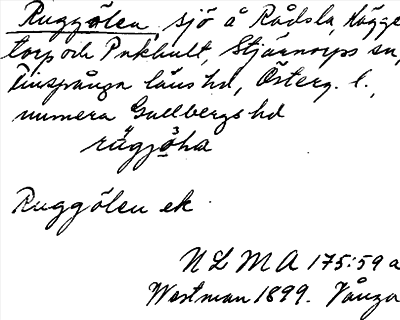 Ruggölen, sjö å Rådsla, Hägge
torp och Pukhult, Stjärnorps sn,
Finspånga läns hd, Österg. l.,
numera Gullbergs hd
Ruggölen ek
N L M A 175:59 a
Westman 1899. Vånga